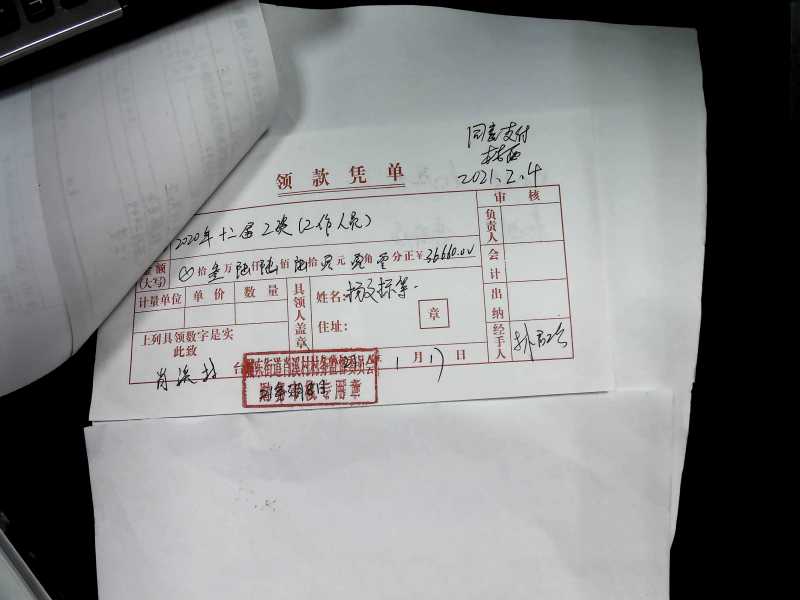 同意支付
2021.2.4
领款凭单
审核
2020年十二届工资(工作人员)
负责人
金额
(大写)
拾叁万陆仟陆佰陆拾零元零角零分正¥36660.00
会计
计量单位 单价 数量
具领人盖章
姓名: 等
章
住址:
出纳
上列具领数字是实
此致
经手人
肖溪村 台
东街道肖溪村村务监督委员会
专用章
1月17日